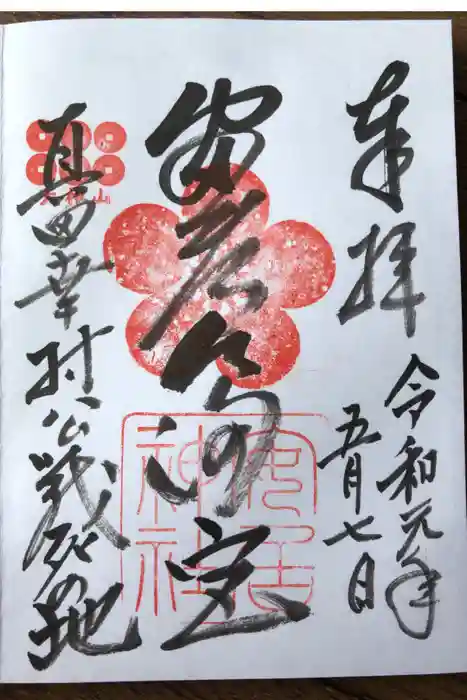 奉拝
令和元年
五月七日
安居天満宮
安居
神社
真田幸村公戦死の地